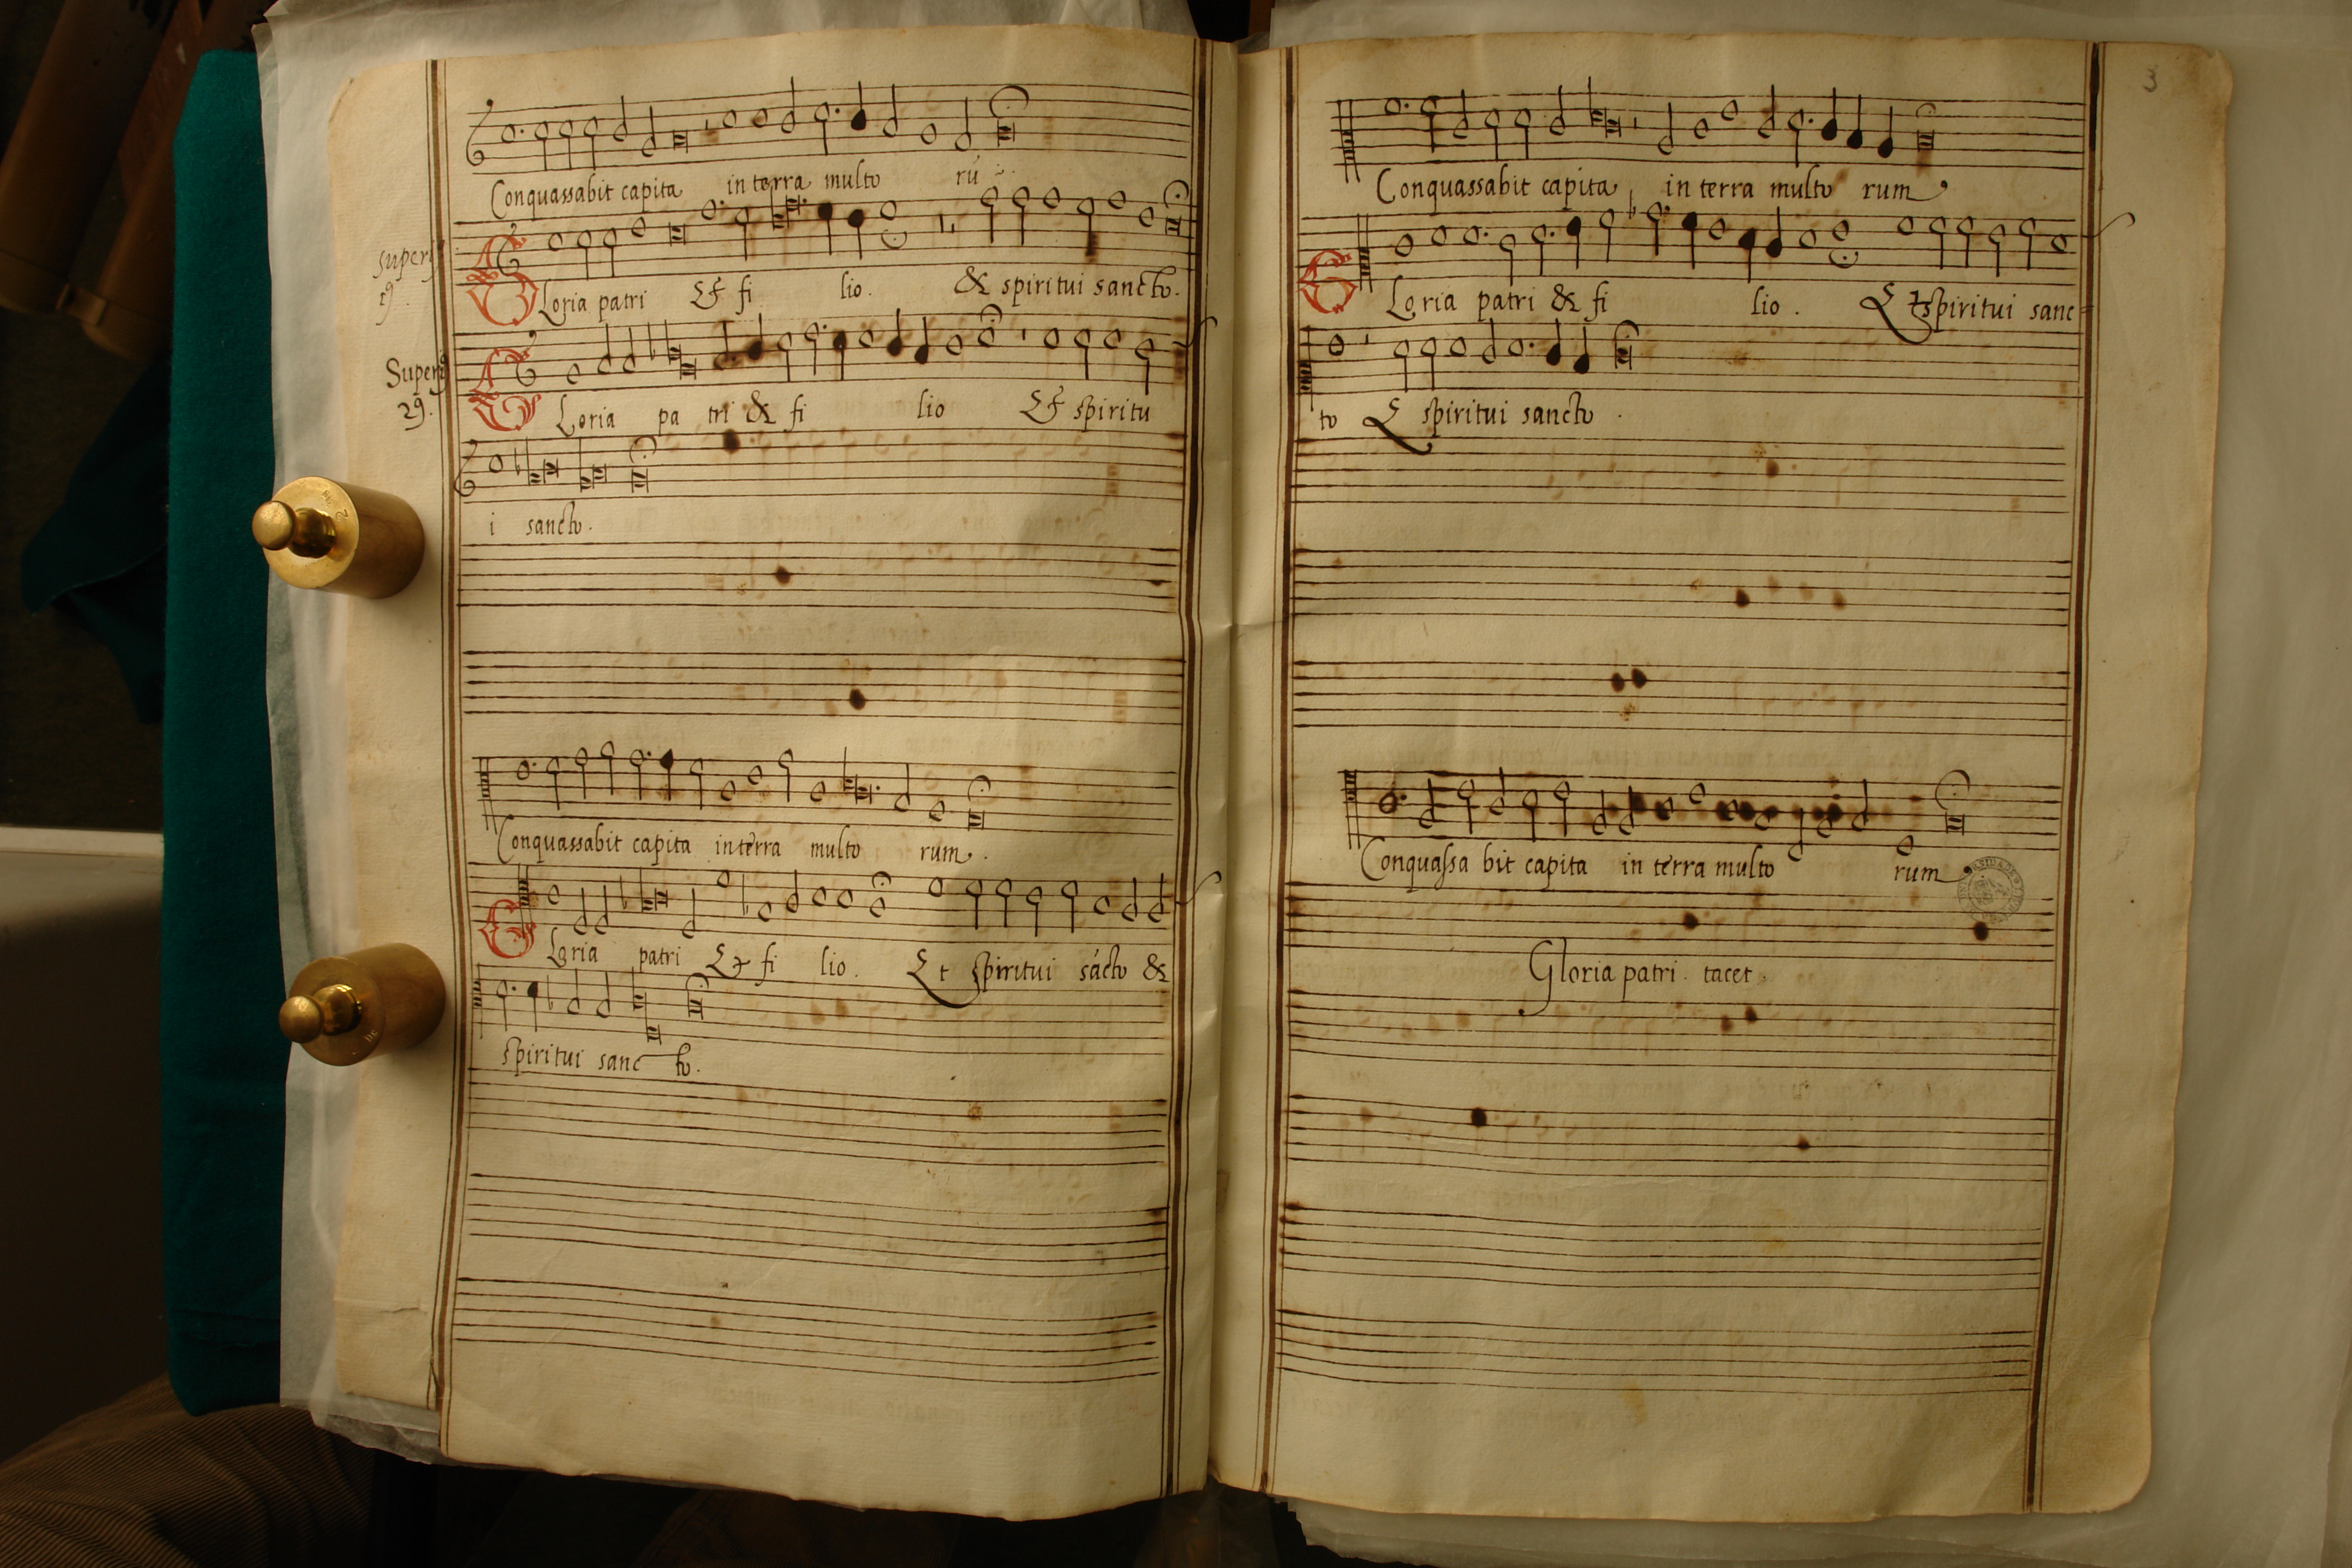 Conquassabit capita in terra multo rū
Superi9 19.
Gloria patri Et fi lio. & spiritui sancto.
Superi9 29.
Gloria pa tri & fi lio Et spiritu
i sancto.
Conquassabit capita in terra multo rum.
Gloria patri Et fi lio. Et spiritui sācto &
spiritui sanc to.
3
Conquassabit capita in terra multo rum
Gloria patri & fi lio. Et spiritui sanc=
to Et spiritui sancto.
Conquassa bit capita in terra multo rum.
Gloria patri. tacet.